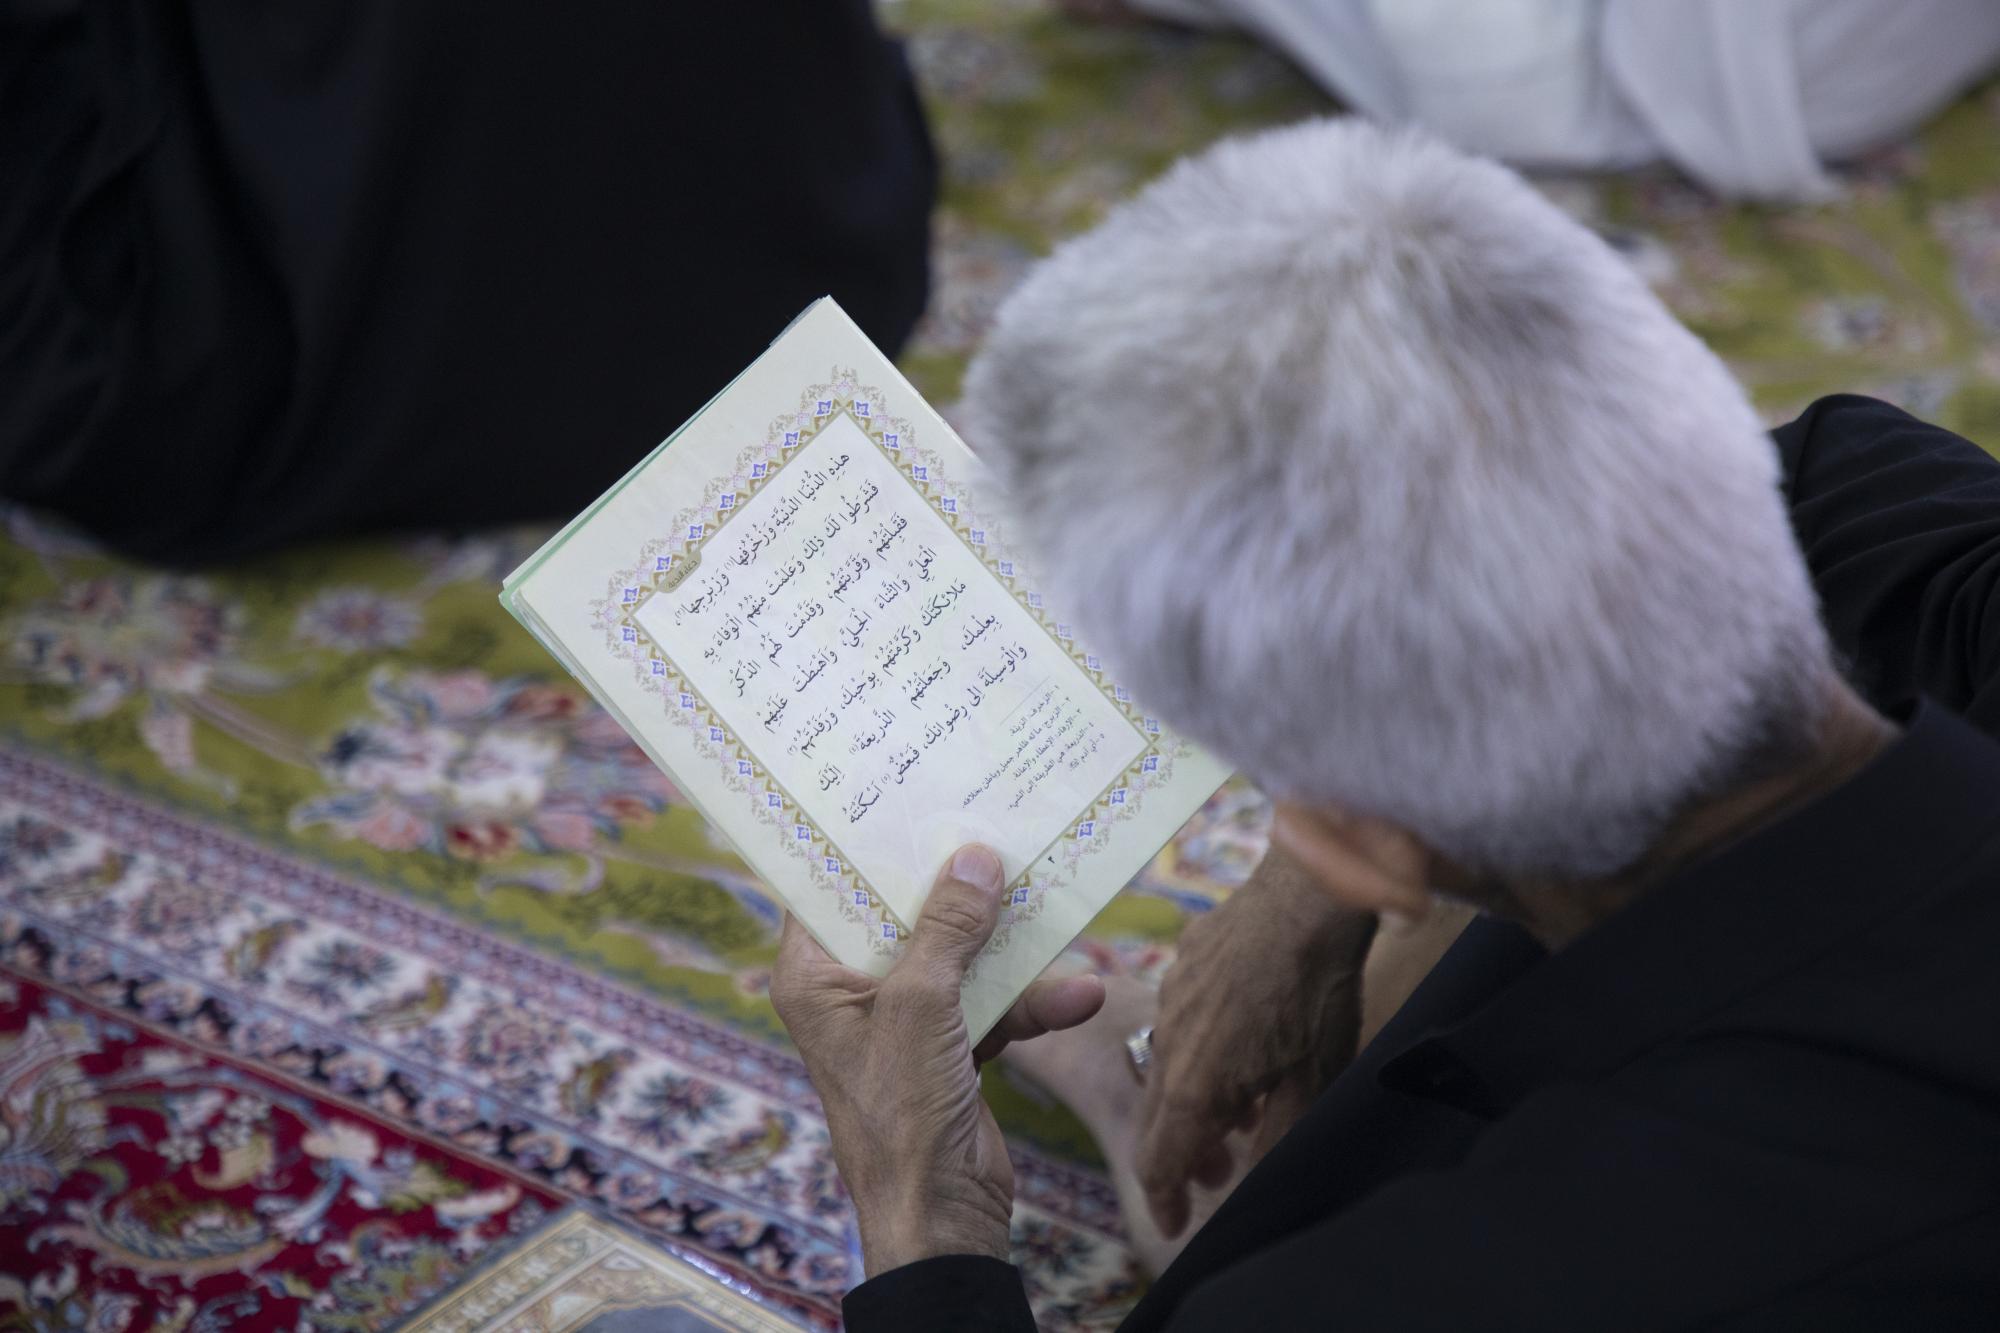 دعاء الندبة
هذِهِ الدُّنْيَا الدَّنِيَّةِ وَزُخْرُفِهَا(١) وَزِبْرِجِهَا(٢)،
فَشَرَطُوا لَكَ ذلِكَ وَعَلِمْتَ مِنْهُمُ الْوَفَاءَ بِهِ
فَقَبِلْتَهُمْ وَقَرَّبْتَهُمْ، وَقَدَّمْتَ لَهُمُ الذِّكْرَ
الْعَلِيَّ وَالثَّنَاءَ الْجَلِيَّ، وَاَهْبَطْتَ عَلَيْهِمْ
مَلَائِكَتَكَ وَكَرَّمْتَهُمْ بِوَحْيِكَ، وَرَفَدْتَهُمْ(٣)
بِعِلْمِكَ، وَجَعَلْتَهُمُ الذَّرِيعَةَ(٤) اِلَيْكَ
وَالْوَسِيلَةَ اِلى رِضْوَانِكَ، فَبَعْضٌ(٥) اَسْكَنْتَهُ
١-الزخرف: الزينة.
٢-الزبرج: ما له ظاهر جميل وباطن بخلافه.
٣-الإرفاد: الإعطاء والإعانة.
٤-الذريعة: هي الطريقة إلى الشيء.
٥-أي آدم
٢